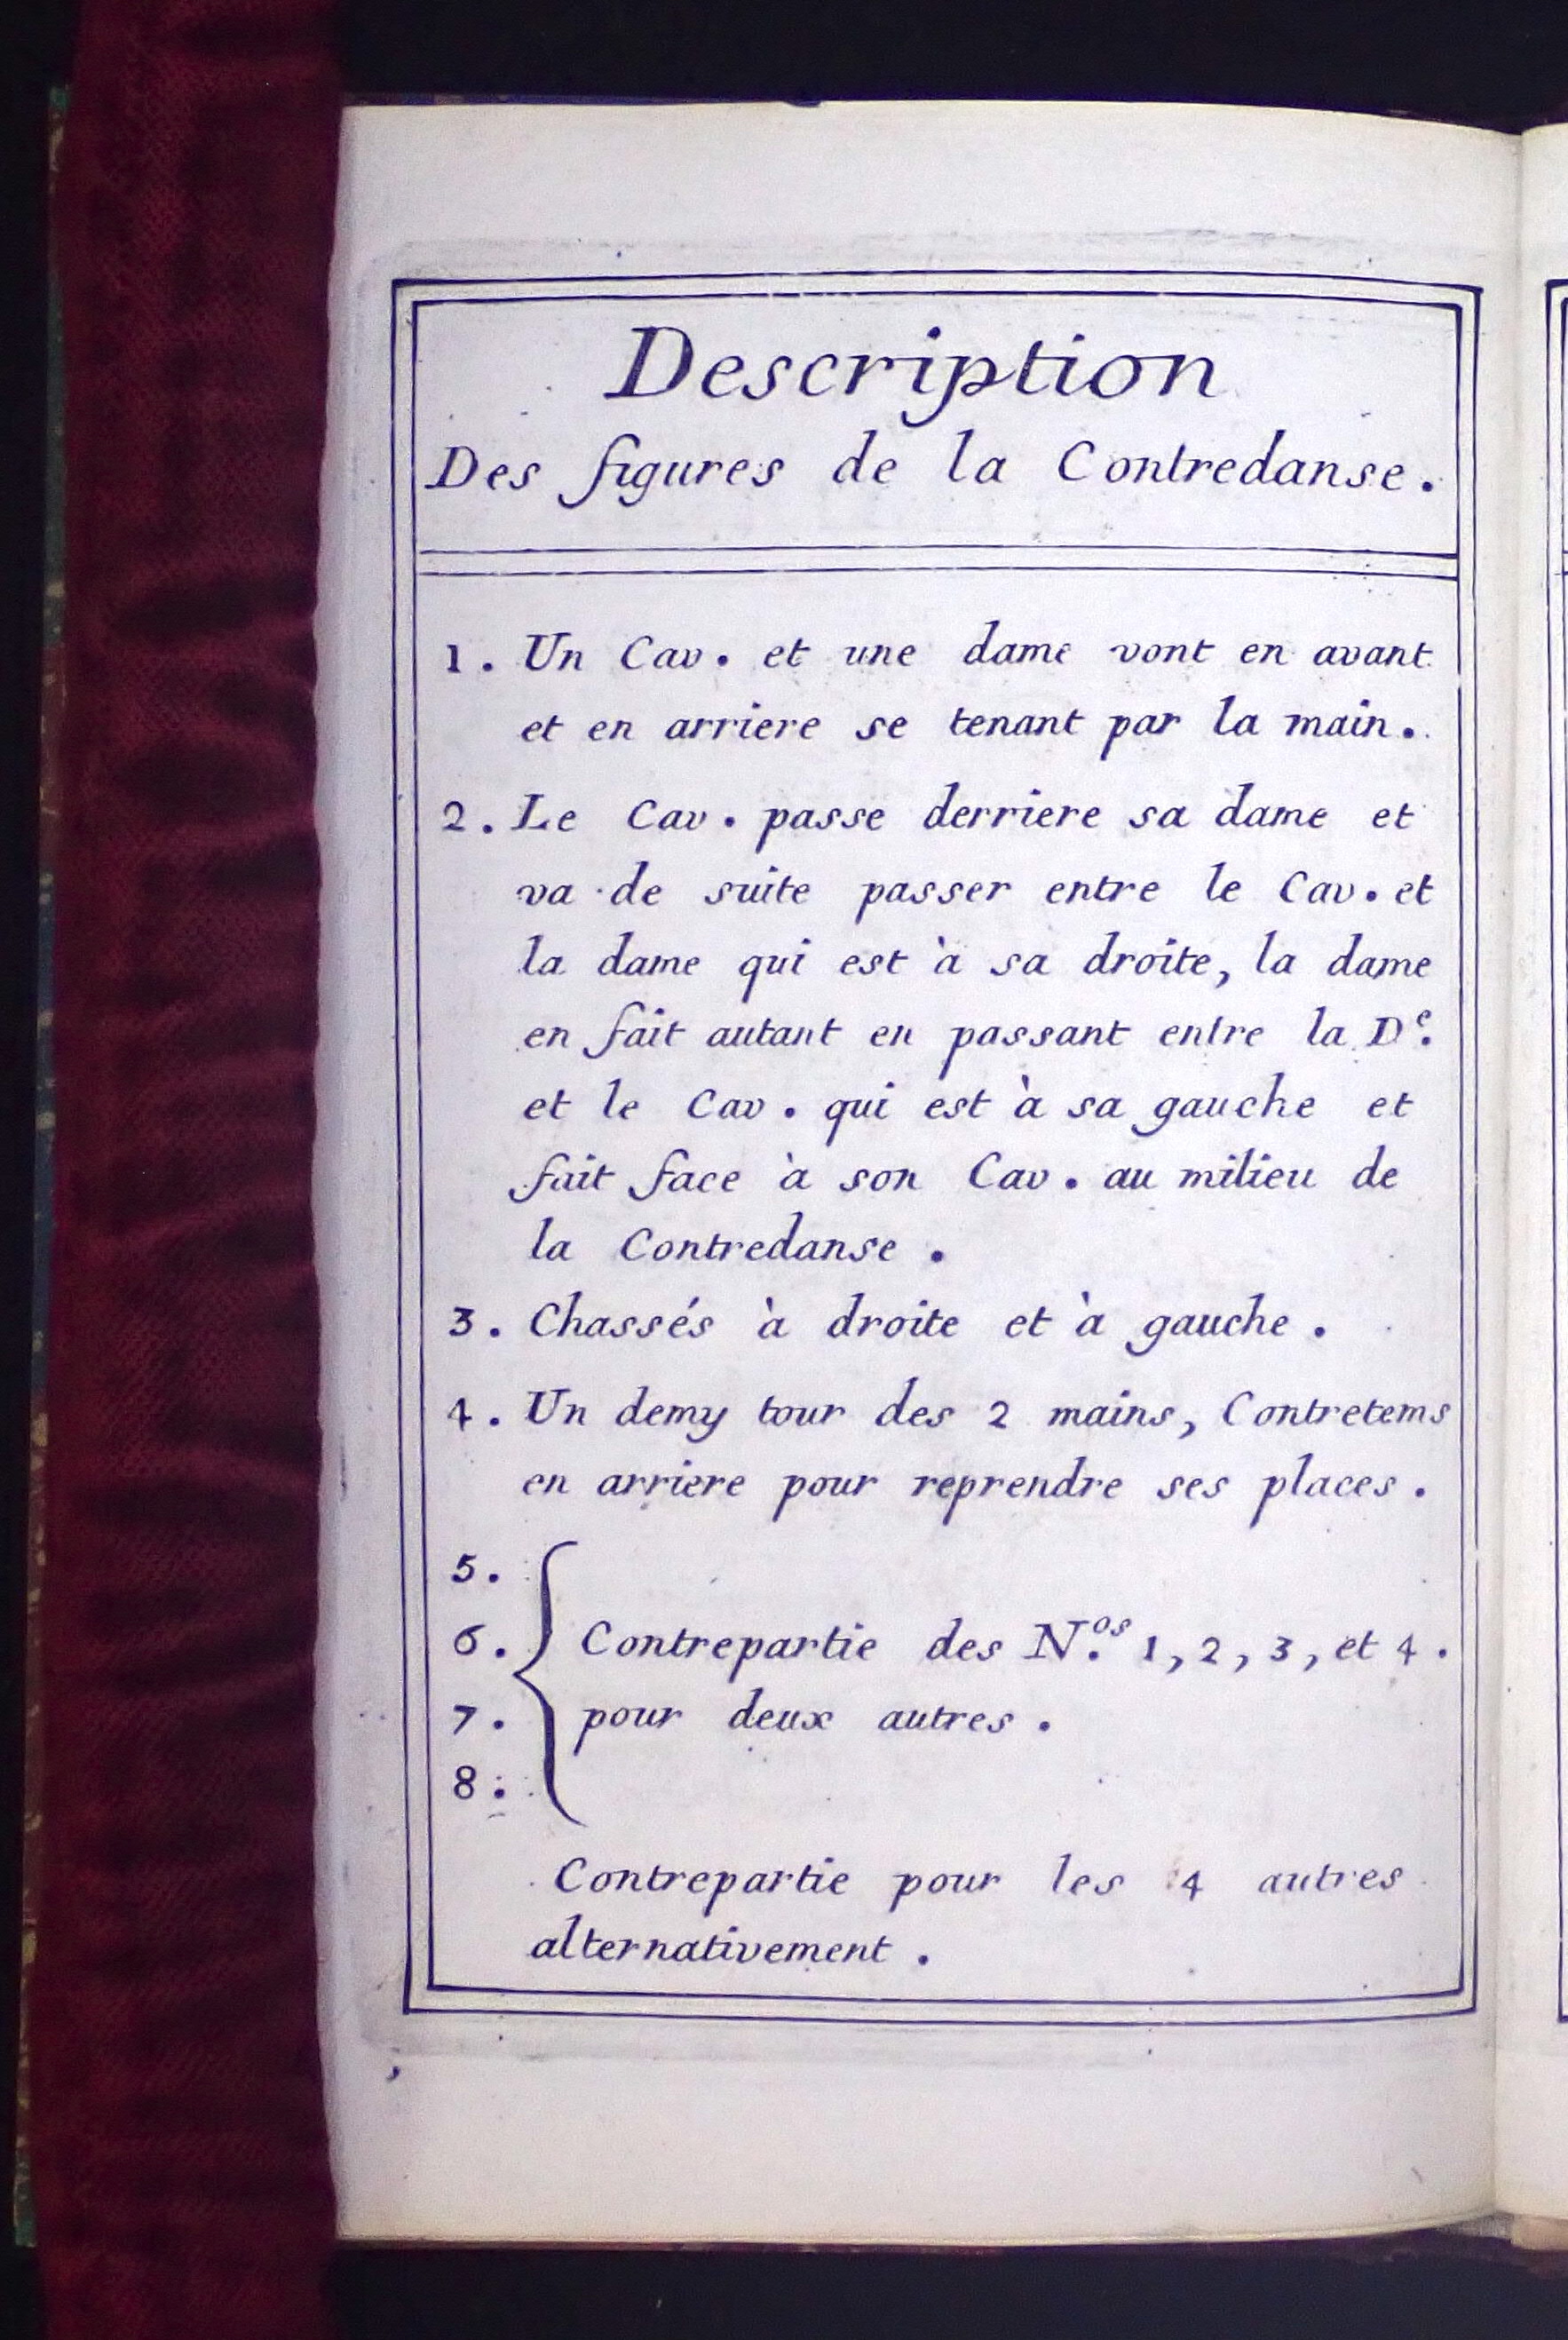 Description
Des figures de la Contredanse.
1. Un Cav. et une dame vont en avant
et en arriere se tenant par la main.
2. Le Cav. passe derriere sa dame et
va de suite passer entre le Cav. et
la dame qui est à sa droite, la dame
en fait autant en passant entre la De.
et le Cav. qui est à sa gauche et
fait face à son Cav. au milieu de
la Contredanse.
3. Chassés à droite et à gauche.
4. Un demy tour des 2 mains, Contretems
en arriere pour reprendre ses places.
5.
6. Contrepartie des N.os 1, 2, 3, et 4.
7. pour deux autres.
8.
Contrepartie pour les 4 autres
alternativement.